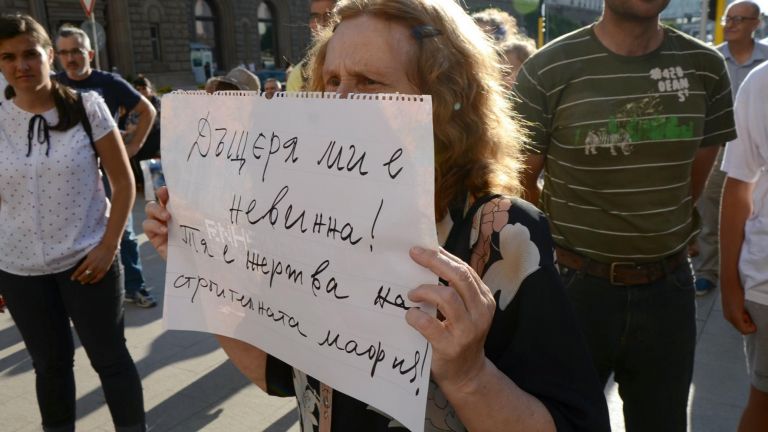 Дъщеря ми е
невинна!
Тя е жертва на
строителната
мафия!
#420
DEAN
ST